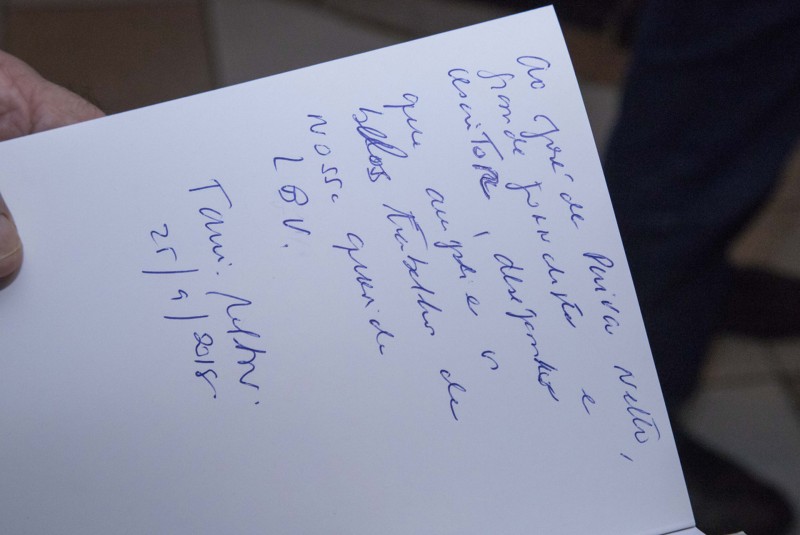 Ao José de Paiva Netto,
grande jornalista e
escritor, desejamos
que amplie os
belos trabalhos de
nossa querida
LBV.
25/9/2018